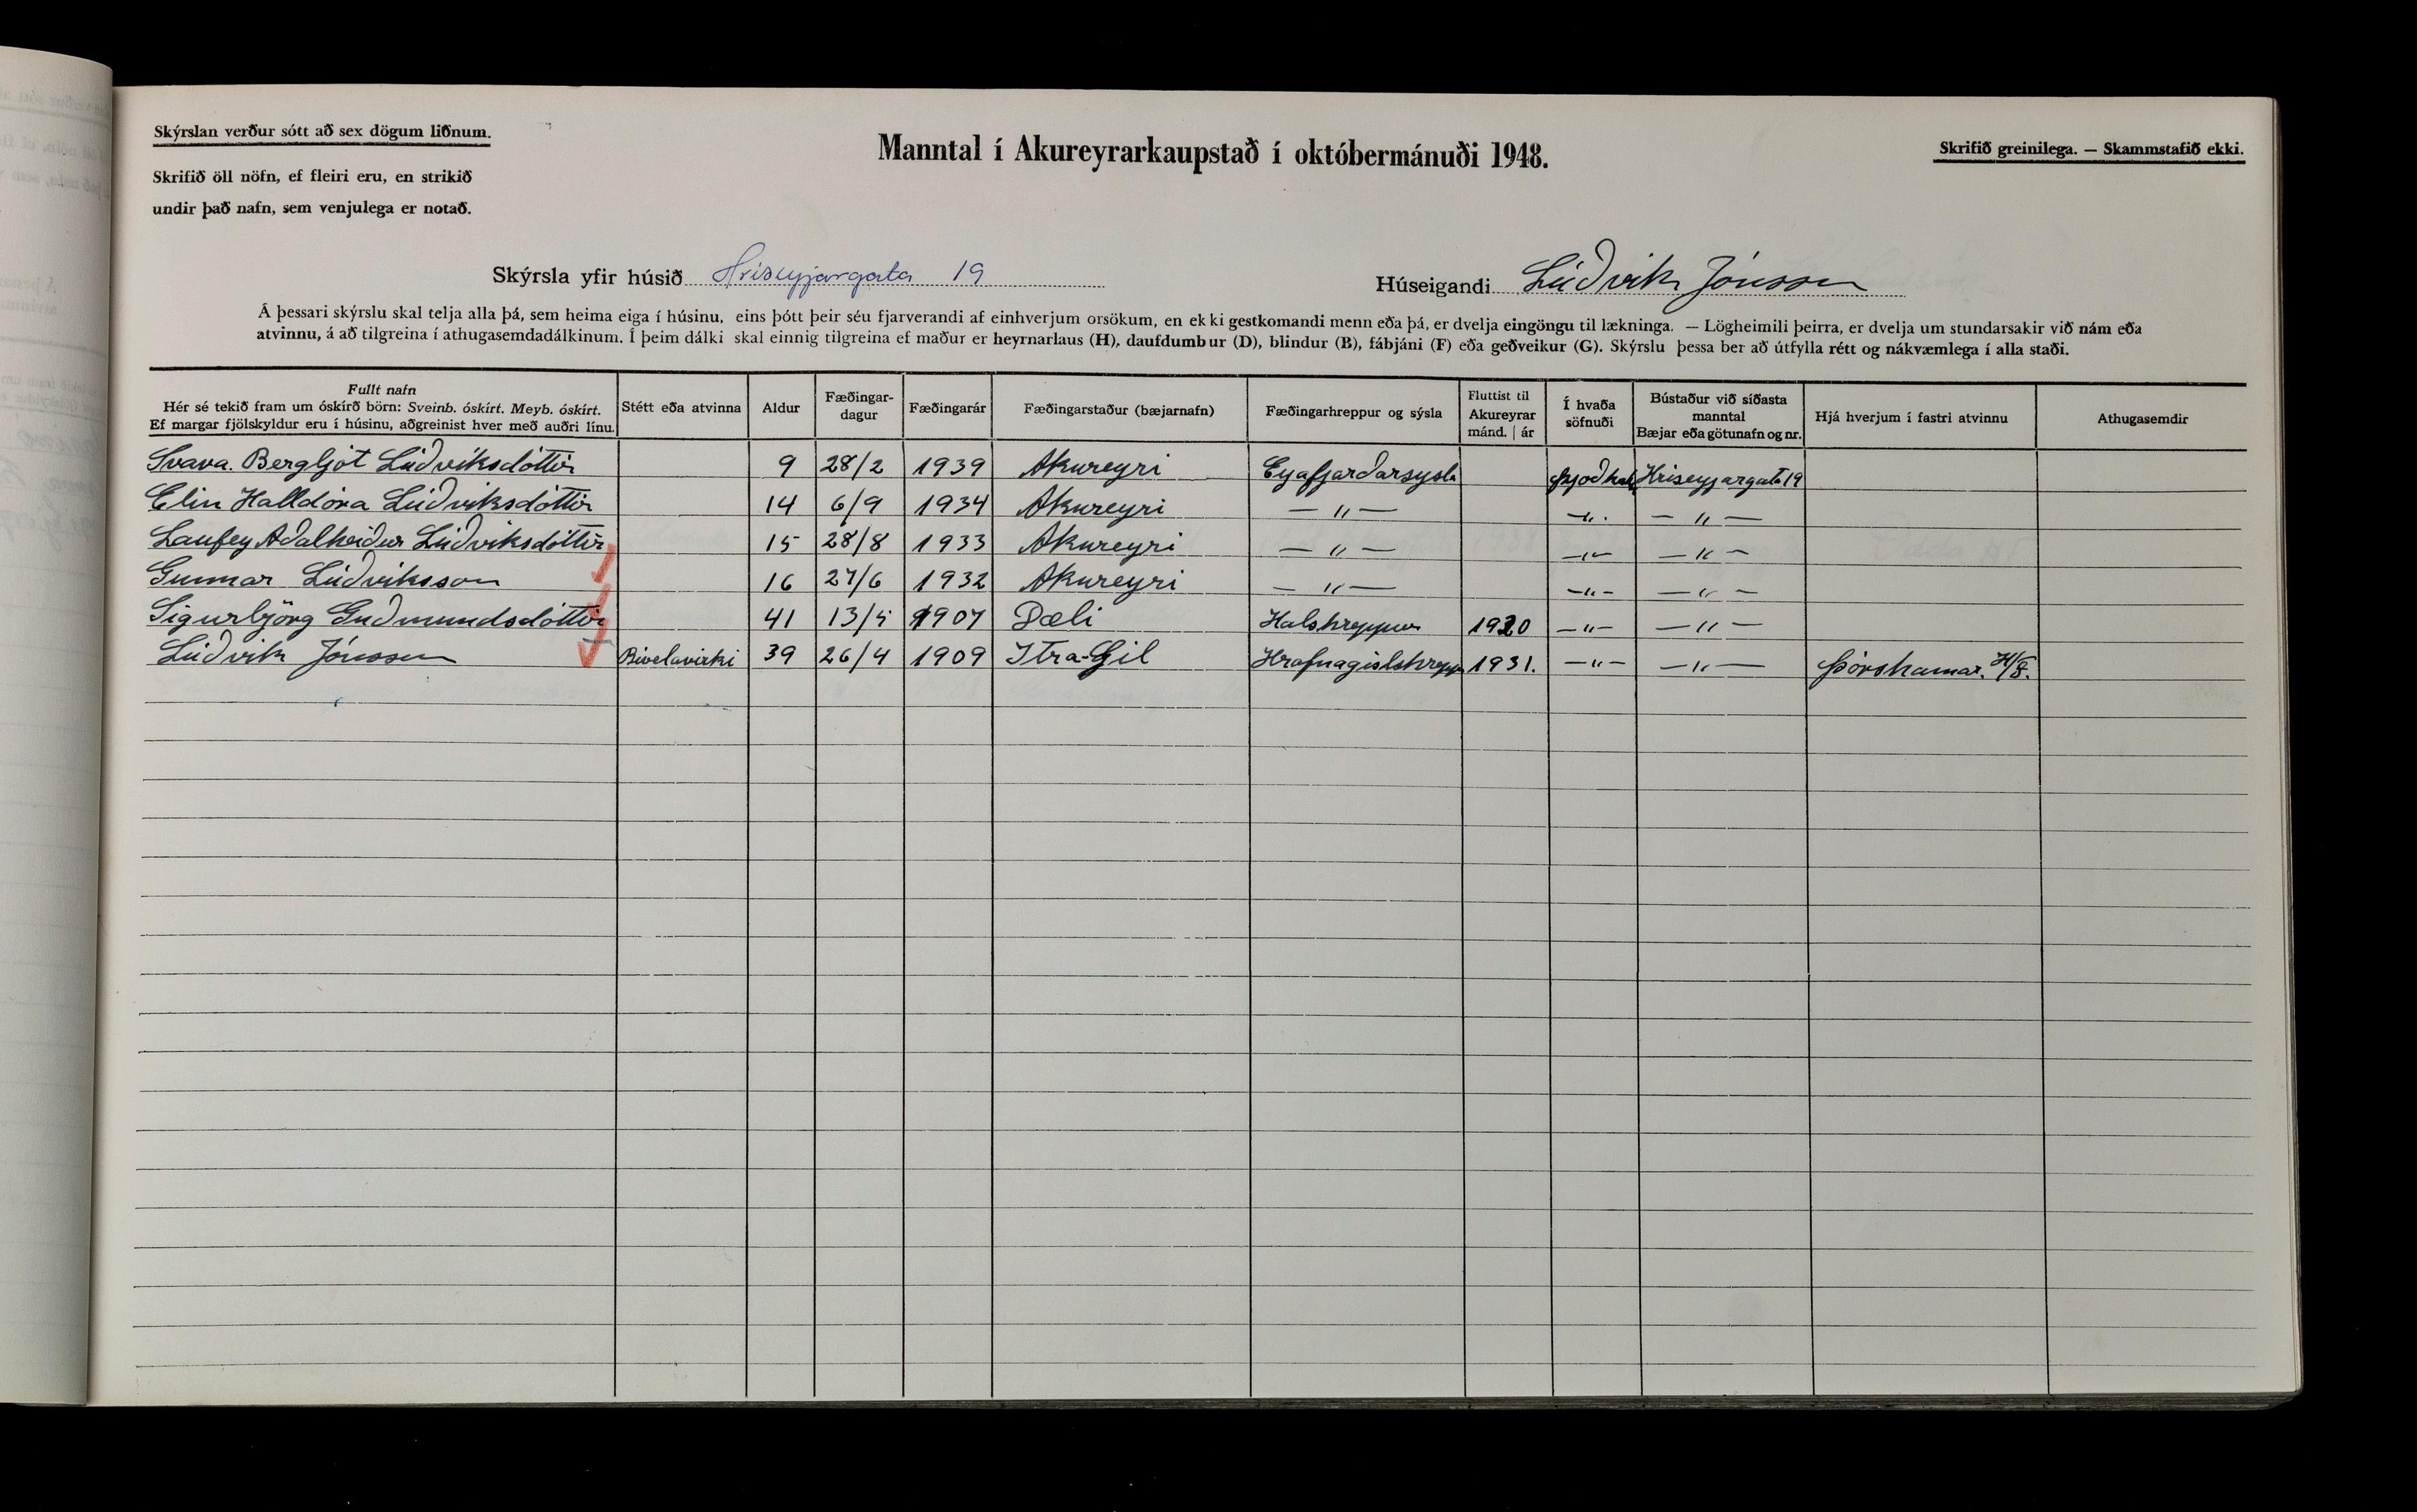 Skýrslan verður sótt að sex dögum liðnum.
Skrifið öll nöfn, ef fleiri eru, en strikið
undir það nafn, sem venjulega er notað.
Manntal í Akureyrarkaupstað í októbermánuði 1948.
Skrifið greinilega. — Skammstafið ekki.
Skýrsla yfir húsið Hríseyjargata 19
Húseigandi Lúðvik Jónsson
Á þessari skýrslu skal telja alla þá, sem heima eiga í húsinu, eins þótt þeir séu fjarverandi af einhverjum orsökum, en ekki gestkomandi menn eða þá, er dvelja eingöngu til lækninga. — Lögheimili þeirra, er dvelja um stundarsakir við nám eða
atvinnu, á að tilgreina í athugasemdadálkinum. Í þeim dálki skal einnig tilgreina ef maður er heyrnarlaus (H), daufdumbur (D), blindur (B), fábjáni (F) eða geðveikur (G). Skýrslu þessa ber að útfylla rétt og nákvæmlega í alla staði.
Fullt nafn
Hér sé tekið fram um óskírð börn: Sveinb. óskírt. Meyb. óskírt.
Ef margar fjölskyldur eru í húsinu, aðgreinist hver með auðri línu.
Stétt eða atvinna
Aldur
Fæðingar-
dagur
Fæðingarár
Fæðingarstaður (bæjarnafn)
Fæðingarhreppur og sýsla
Fluttist til
Akureyrar
mánd. | ár
Í hvaða
söfnuði
Bústaður við síðasta
manntal
Bæjar eða götunafn og nr.
Hjá hverjum í fastri atvinnu
Athugasemdir
Svava. Bergljót Lúðviksdóttir 9 28/2 1939 Akureyri Eyafjarðarsysla Hriseyjargata 19
Elin Halldóra Lúðviksdóttir 14 6/9 1934 Akureyri — " — — " — — " —
Laufey Aðalheiður Lúðviksdóttir 15 28/8 1933 Akureyri — " — — " — — " —
Gunnar Lúðviksson 16 27/6 1932 Akureyri — " — — " — — " —
Sigurbjörg Guðmundsdóttir 41 13/5 1907 Dæli Halshreppur 1930 — " — — " —
Lúðvik Jónsson Bivelavirki 39 26/4 1909 Itra-Gil Hrafnagilshrepp 1931. — " — — " — Þórshamar. H/f.